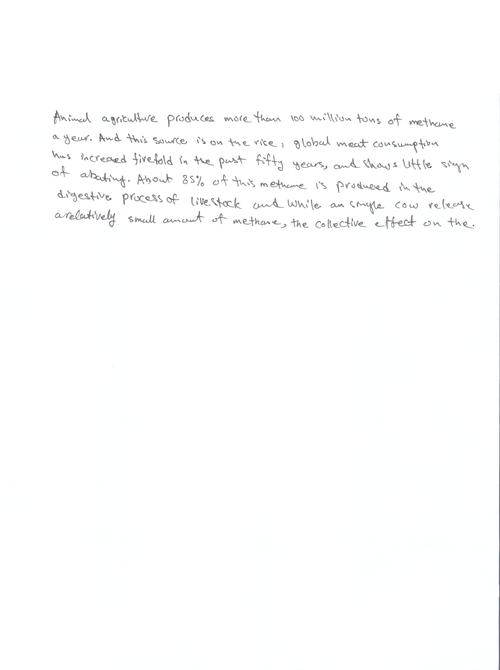 Animal agriculture produces more than 100 million tons of methane
a year. And this source is on the rise; global meat consumption
has increased fivefold in the past fifty years, and shows little sign
of abating. About 85% of this methane is produced in the
digestive process of livestock and while an single cow release
arelatively small amount of methane, the collective effect on the.